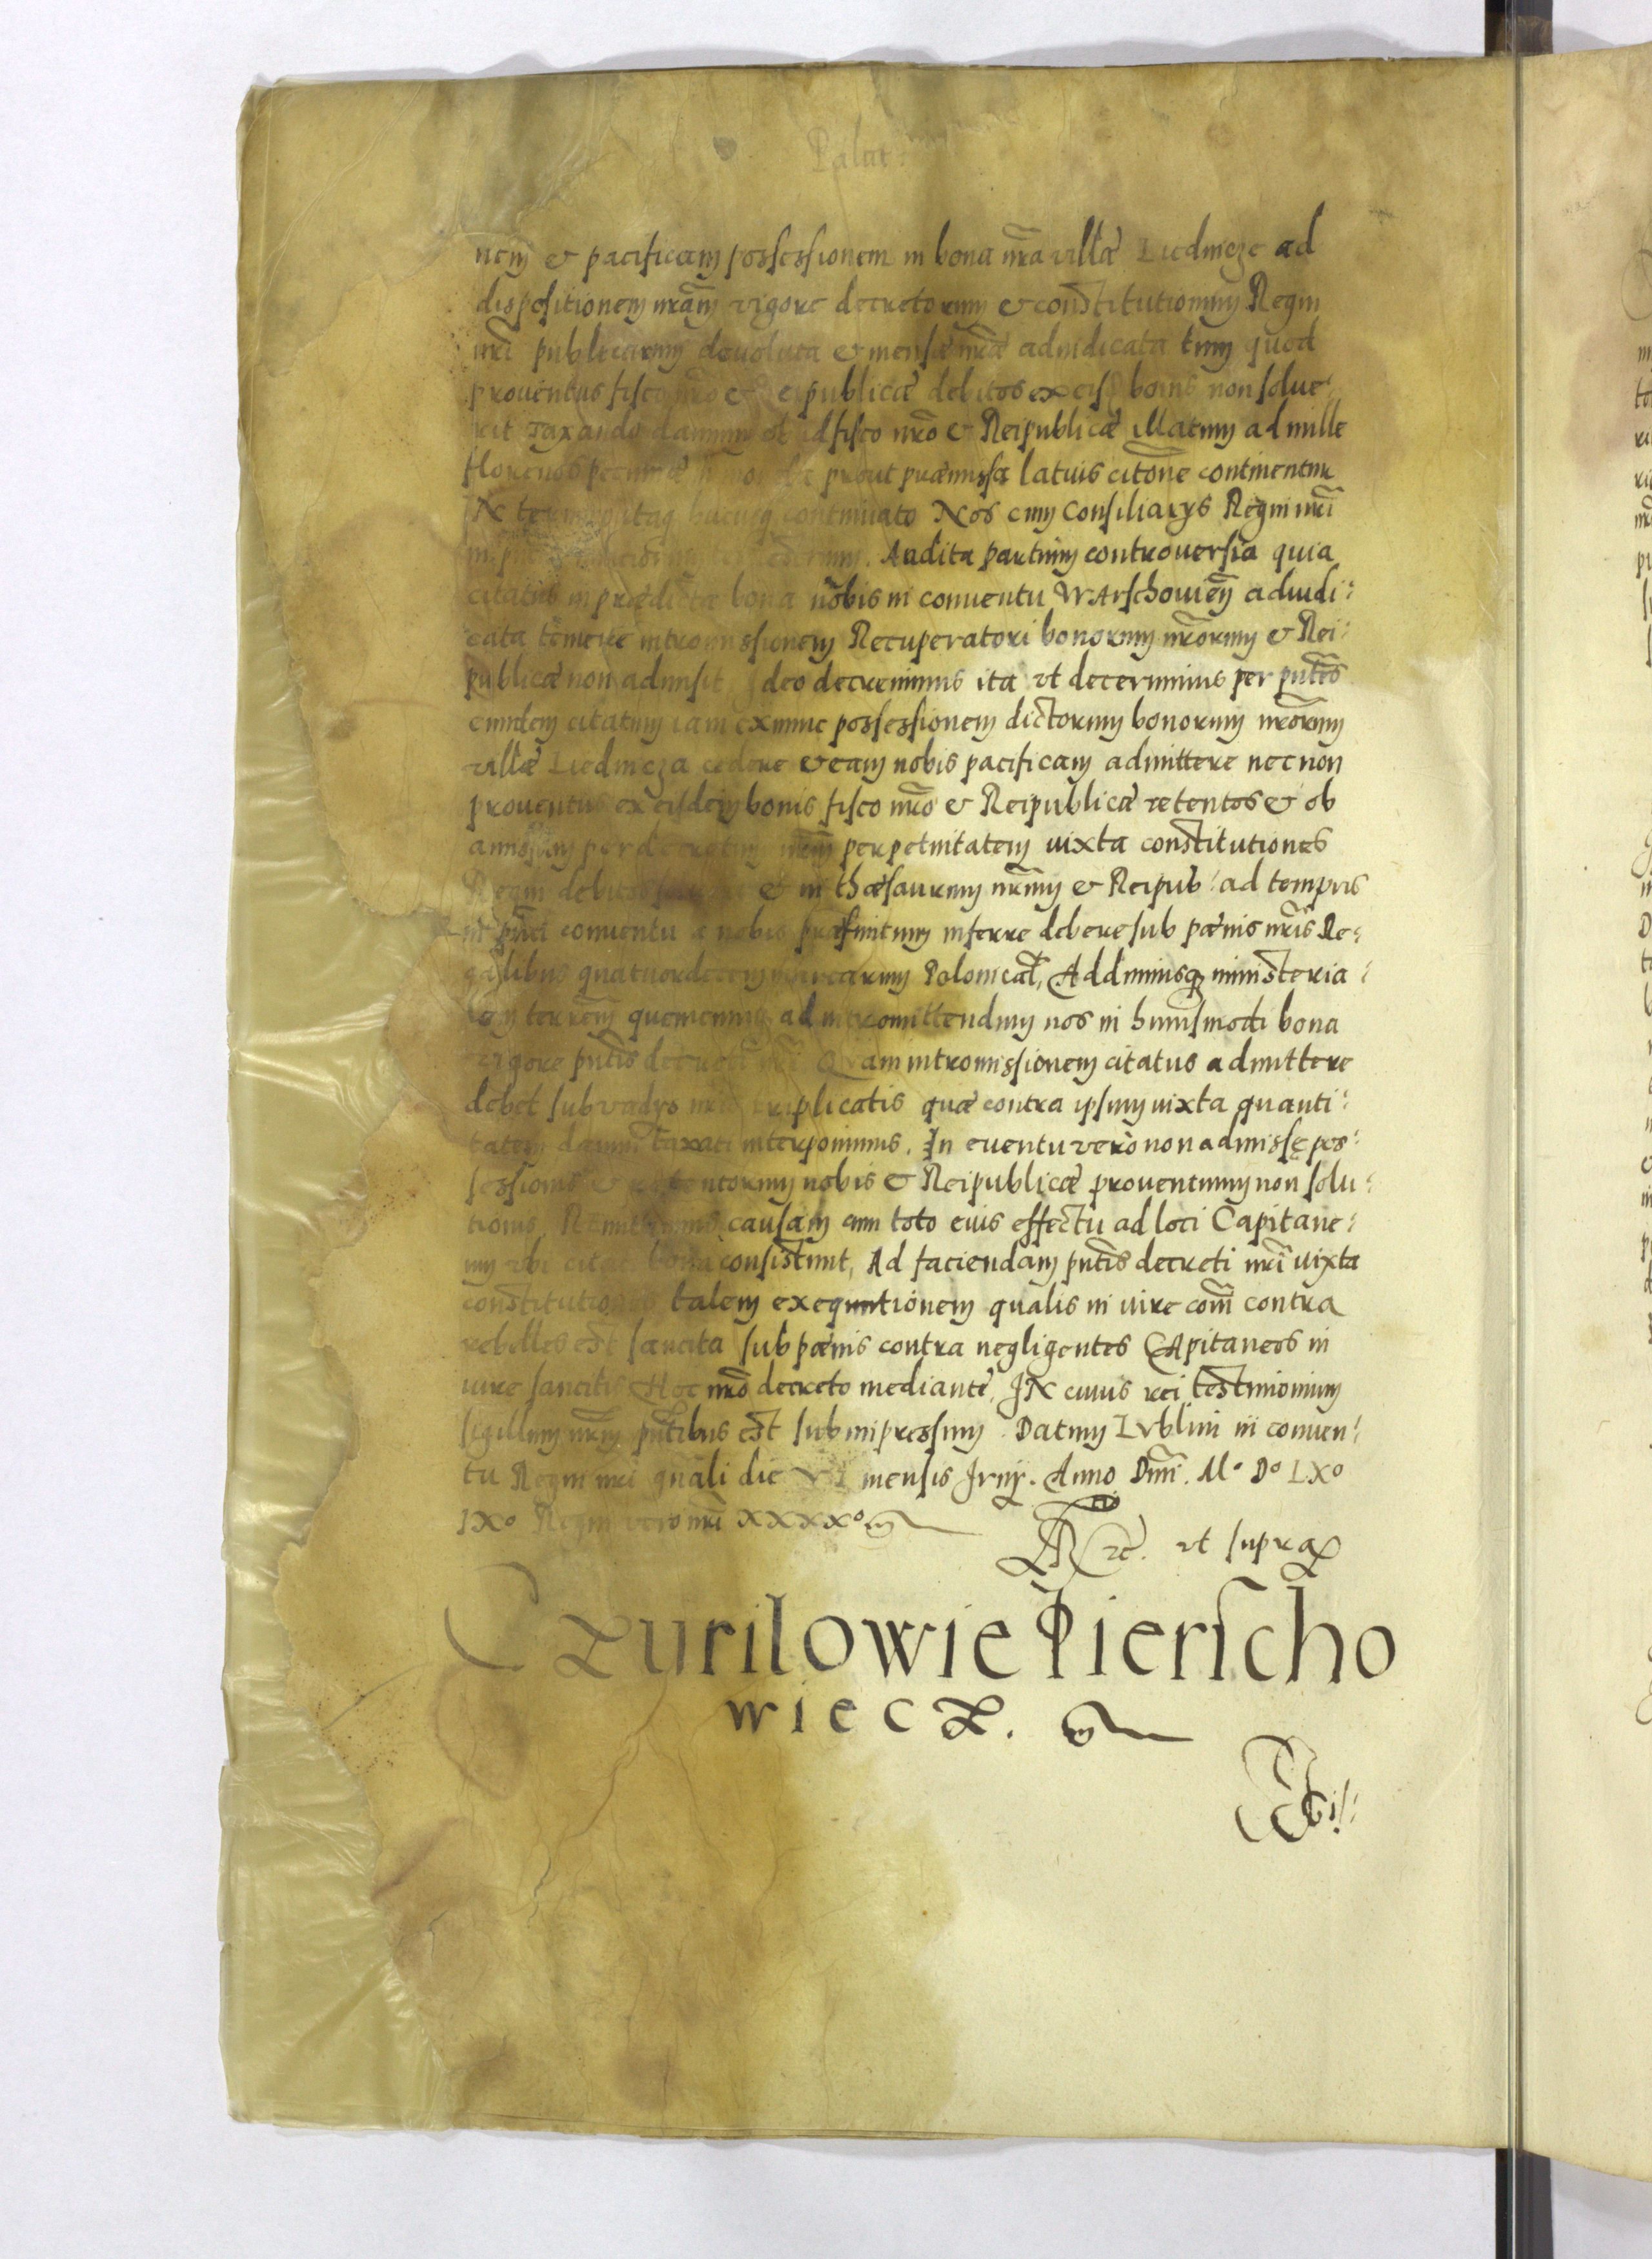 Palat:
nem & pacificam possessionem in bona nr̃a villæ Liedmeze ad
dispositionem nr̃am vigore decretorum & constitutionum Regni
nr̃i publicarum devoluta & mensæ nr̃æ adiudicata tum quod
proventus fisco nr̃o & eipublicæ debitos ex eisd bonis non solue:
rit Taxando damnum ob id fisco nr̃o & Reipublicæ illatum ad mille
florenos pecuniæ prout præmissa latius citõne continentur
IN termino itaq hucusq continuato Nos cum Consiliarys Regni nr̃i
Audita partium controversia quia
citatus in prædicta bona nobis in conventu WArschovień adiudi:
cata temere intromissionem Recuperatori bonorum nr̃orum & Rei:
publicæ non admisit Ideo decrevimus ita vt decernimus per pñtes
eundem citatum iam ex nunc possessionem dictorum bonorum nr̃orum
villæ Liedmeza cedere & eam nobis pacificam admittere nec non
proventus ex eisdem bonis fisco nr̃o & Reipublicæ retentos & ob
per decretum nr̃m perpetuitatem iuxta constitutiones
Regni debitos & in thæsaurum nr̃um & Reipub: ad tempus
in pñti conventu a nobis præfinitum inferre debere sub pœnis nr̃is Re:
galibus quatuordecem marcarum Polonical, Addimusq ministeria:
lem terrem quemcunq ad intromittendum nos in huiusmodi bona
vigore pñtis decreti nr̃i Quam intromissionem citatus admittere
debet sub vadys nr̃is triplicatis quæ contra ipsum iuxta quanti:
tatem damni taxati interponimus. In eventu verò non admissę pos:
sessionis & retentorum nobis & Reipublicæ proventuum non solu:
tionis Remittimus causam cum toto eius effectu ad loci Capitane:
um vbi citat bona consistunt, Ad faciendam pñtis decreti nr̃i iuxta
constitutiones talem exequutionem qualis in iure com̃ contra
rebelles est sancita sub pœnis contra negligentes CApitaneos in
iure sancitis Hoc nr̃o decreto mediante, IN cuius rei testimonium
sigillum nr̃um pñtibus est subimpressum. Datum Lvblini in conven:
tu Regni nr̃i gñali die VI mensis Irny. Anno Dm̃i. M° D° LX°
IX° Regni vero nr̃i XXXX°
Rc. vt supra
CzuriloWie Pierscho
wiecz.